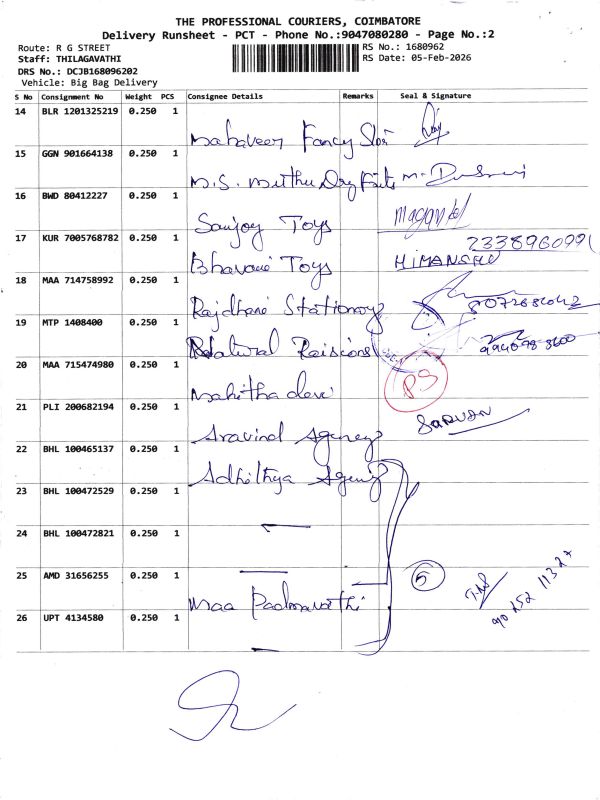 THE PROFESSIONAL COURIERS, COIMBATORE
Delivery Runsheet - PCT - Phone No.:9047080280 - Page No.:2
Route: R G STREET
RS No.: 1680962
Staff: THILAGAVATHI
RS Date: 05-Feb-2026
DRS No.: DCJB168096202
Vehicle: Big Bag Delivery
S No Consignment No Weight PCS Consignee Details Remarks Seal & Signature
14 BLR 1201325219 0.250 1
Mahaveer Fancy
15 GGN 901664138 0.250 1
M.S. Muthu Dry Fruits
16 BWD 80412227 0.250 1
Sanjoy Toys
17 KUR 7005768782 0.250 1
2338960991
Bhavani Toys HIMANSHU
18 MAA 714758992 0.250 1
Rajdhani Stationary
19 MTP 1408400 0.250 1
Natural Raisions
20 MAA 715474980 0.250 1
PS
Mahitha devi
21 PLI 200682194 0.250 1
SARVAN
Aravind Agency
22 BHL 100465137 0.250 1
Adhithya Agency
23 BHL 100472529 0.250 1
24 BHL 100472821 0.250 1
25 AMD 31656255 0.250 1
5
Maa Padmavathi
26 UPT 4134580 0.250 1